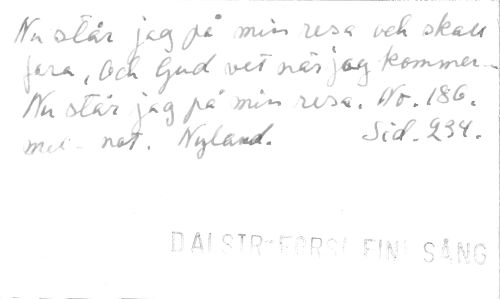 Nu står jag på min resa och skall
fara, och Gud vet när jag kommer -
Nu står jag på min resa. No. 186.
mel. not. Nyland. Sid. 234.
DALSTR- FORS: FIN SÅNG